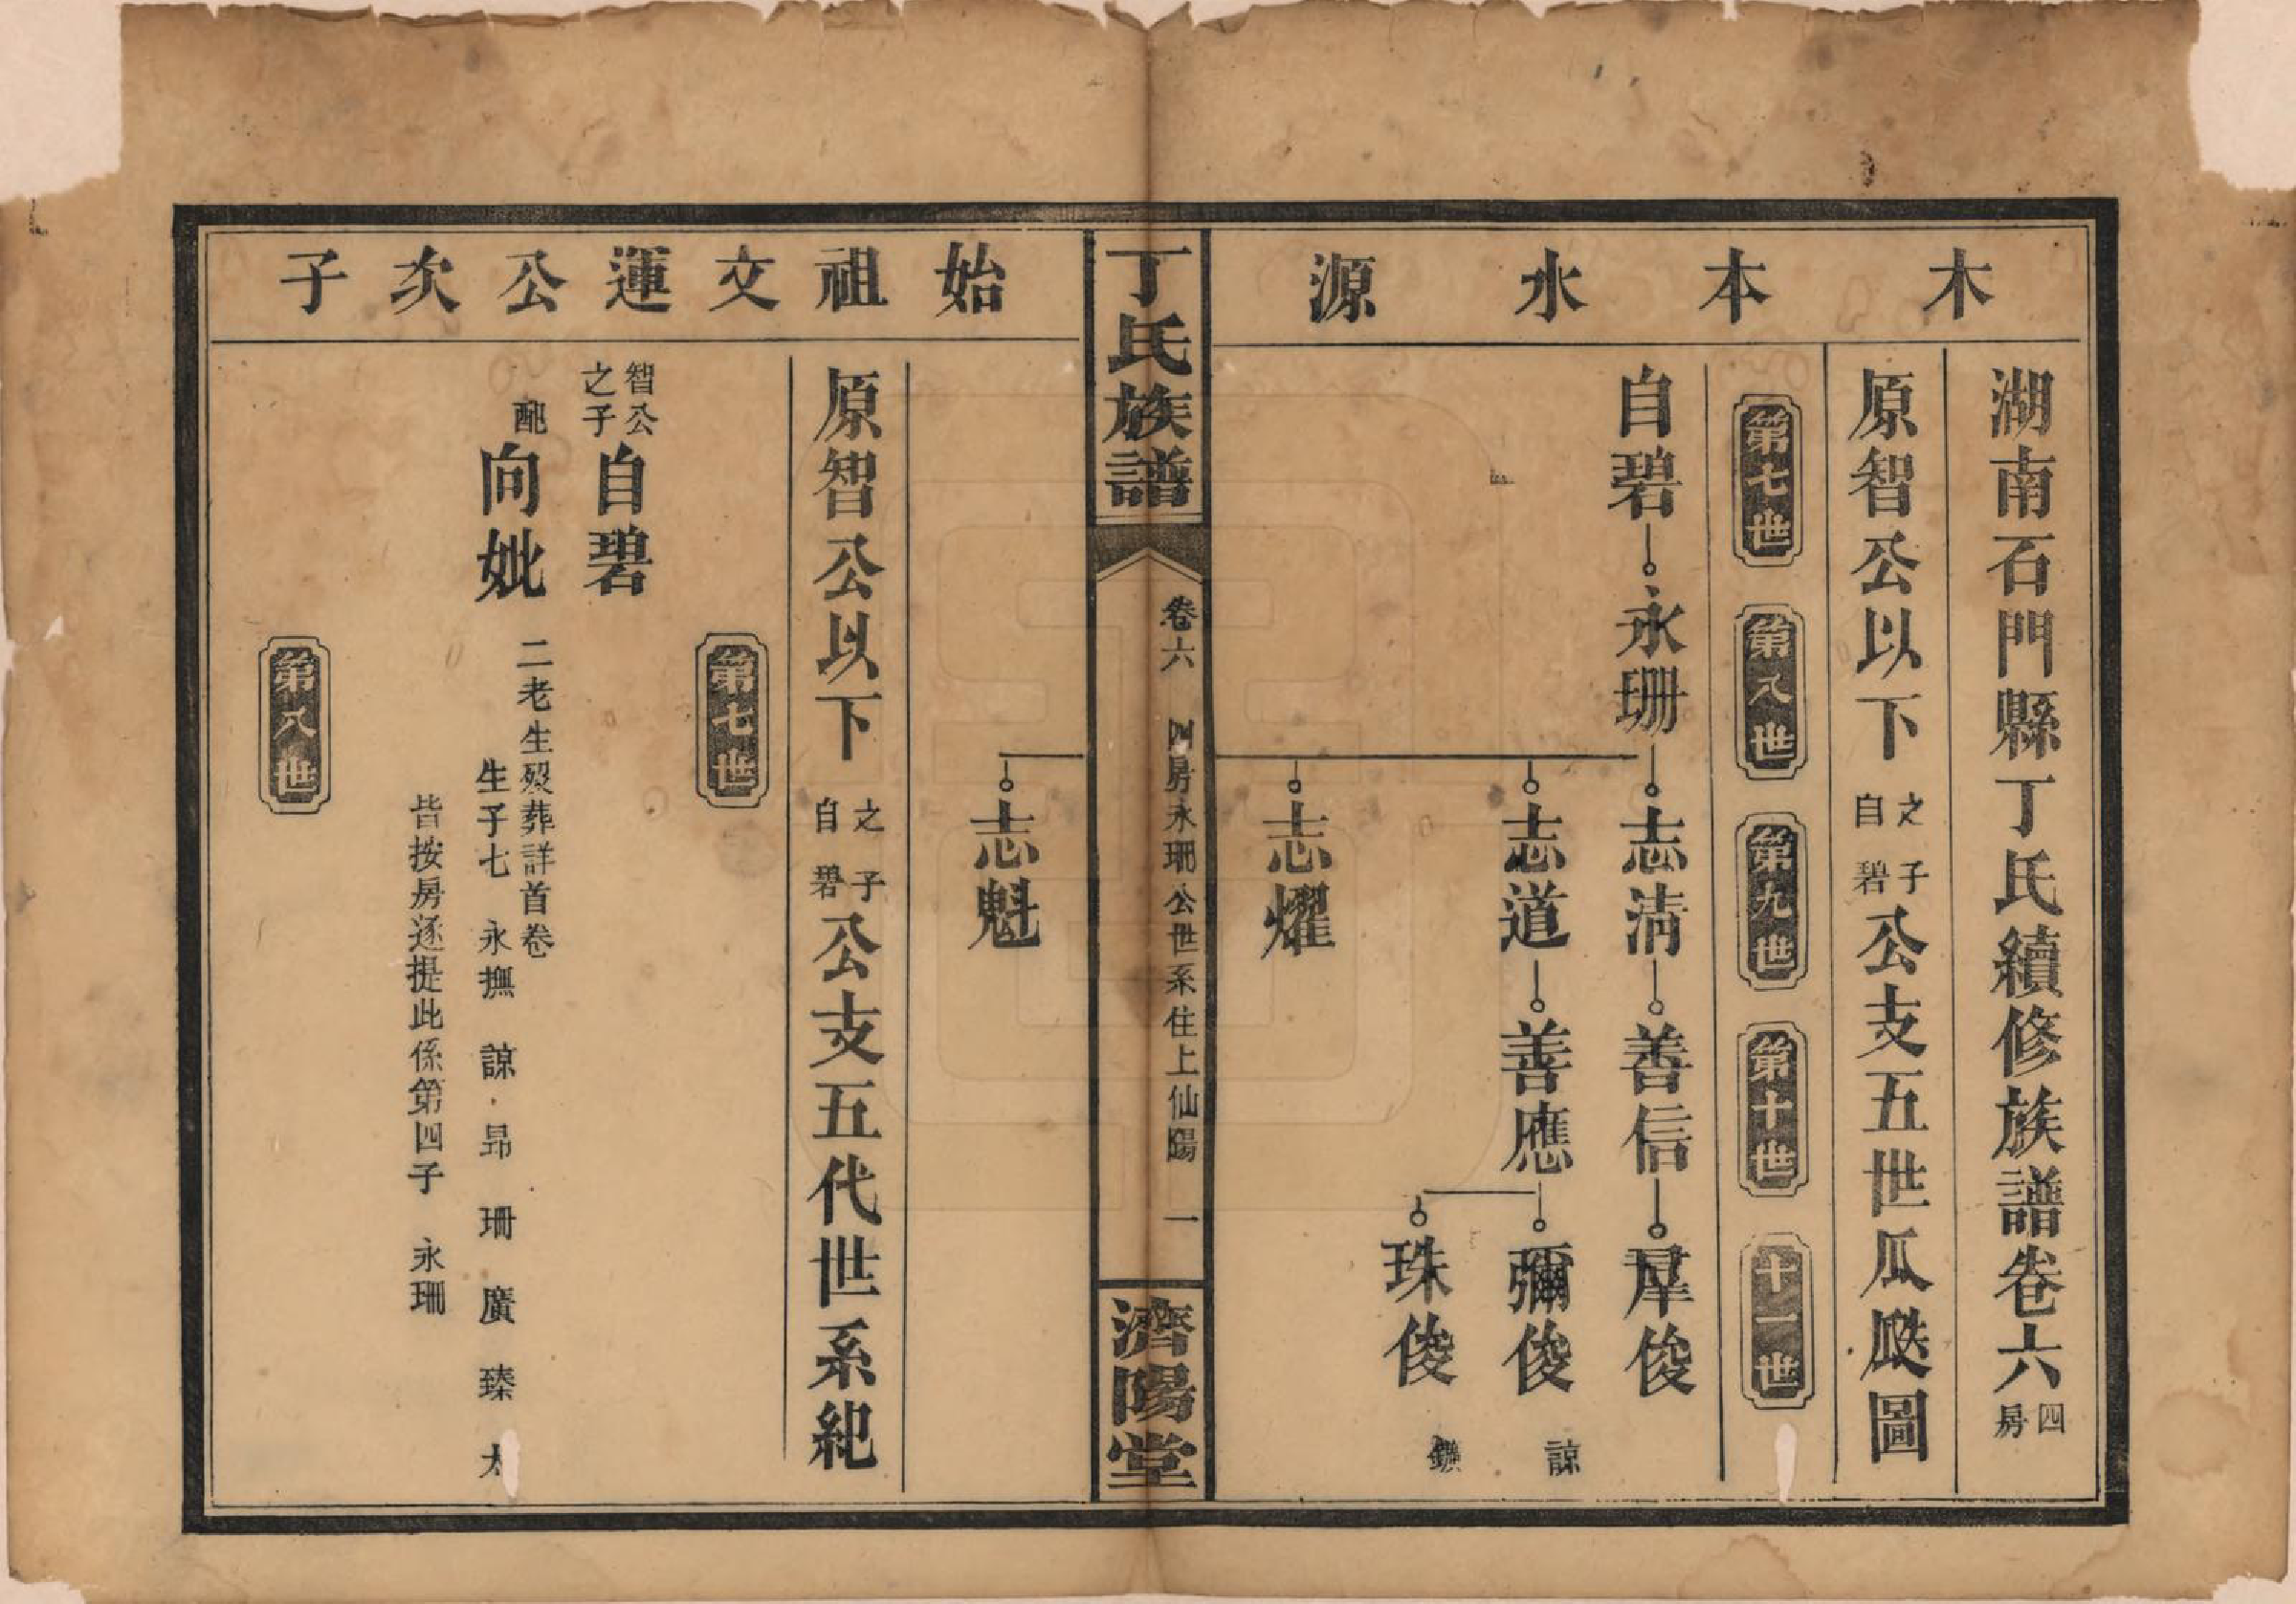 木本水源
湖南石門縣丁氏續修族譜卷六 四房
原智公以下 之子自碧 公支五世瓜瓞圖
第七世 第八世 第九世 第十世 十一世
自碧 永珊 志清 善信 羣俊
志道 善應 彌俊 諒
珠俊
志燿
丁氏族譜
卷六 四房永珊公世系住上仙陽 一
濟陽堂
始祖文運公次子
志魁
原智公以下 之子自碧 公支五代世系紀
第七世
智公之子 自碧
配 向妣 二老生殁葬詳首卷
生子七 永撫 諒 昻 珊 廣 臻 太
皆按房逐提此係第四子 永珊
第八世